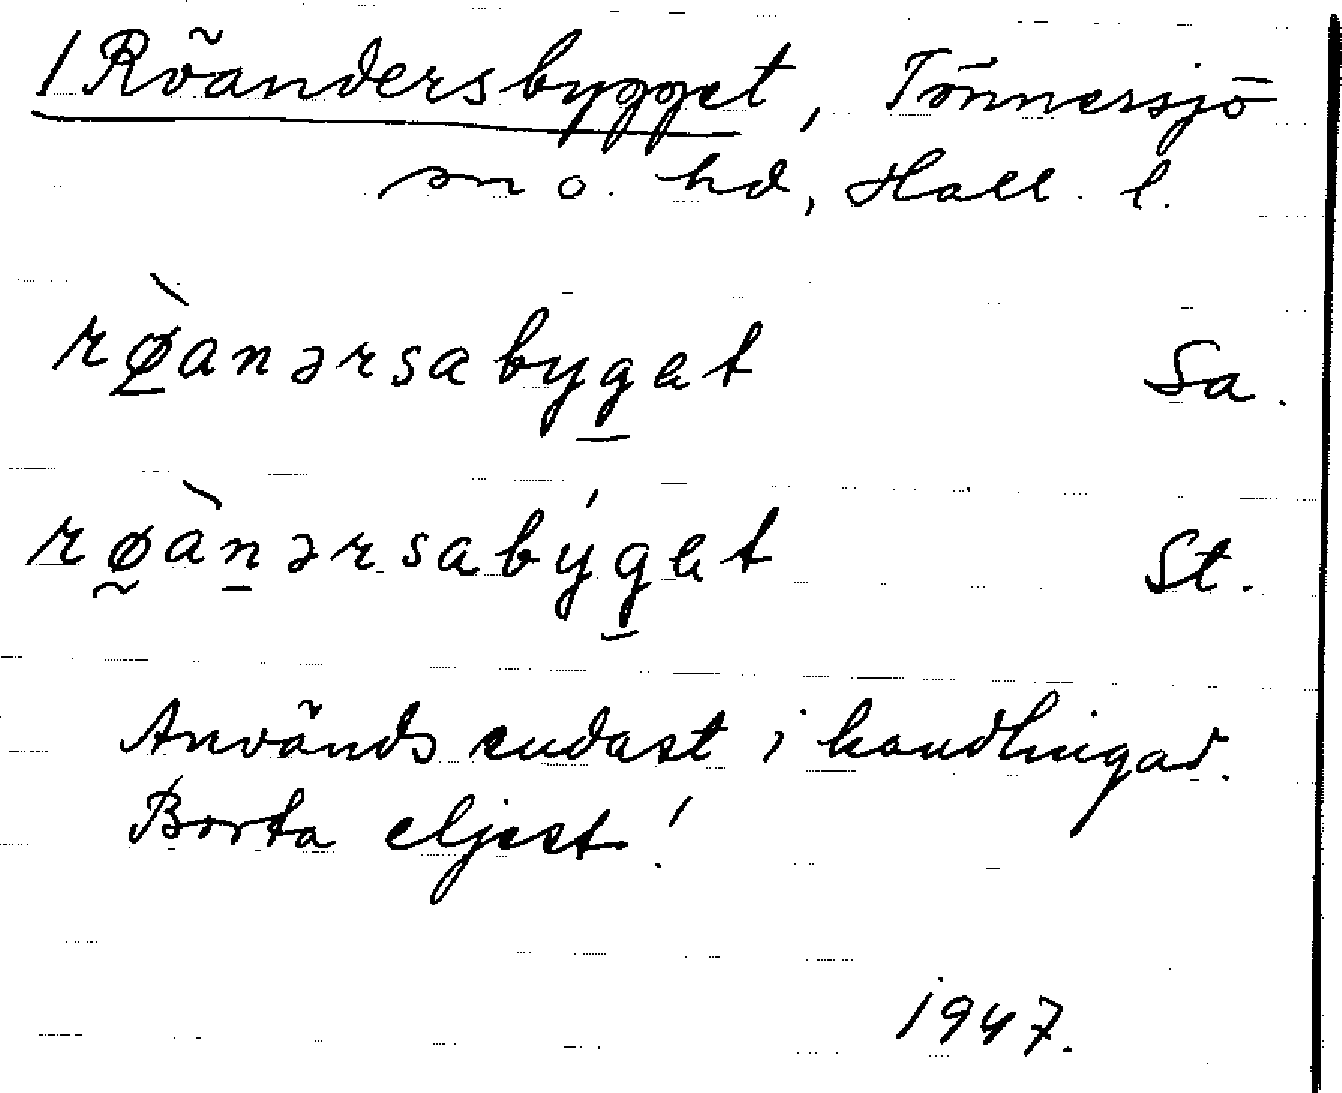 / Röandersbygget, Tönnersjö
sn o. hd, Hall. l.
rø̠̀anərsabyg̠et Sa.
rø̰àn̠ərsabýg̠et St.
Används endast i handlingar.
Borta eljest!
1947.